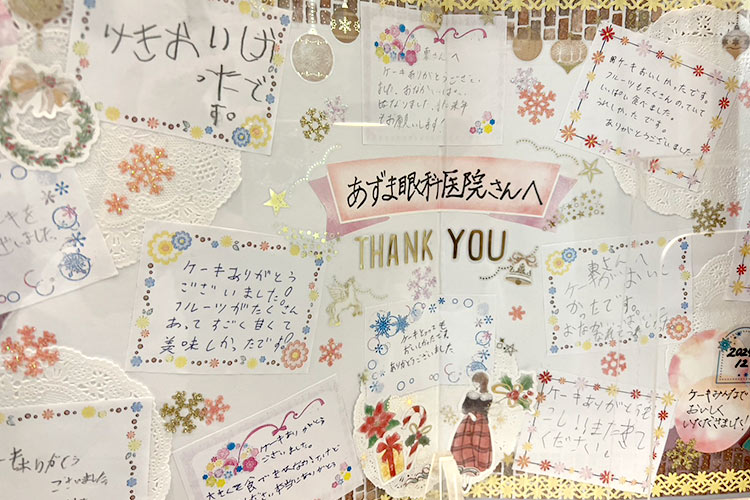 けきおいしか
ったです。
東さんへ
ケーキありがとうござい
ました。おなかいっぱい
になりました。また来年
もお願いします!
ケーキおいしかったです。
フルーツもたくさんのっていて
いっぱい食べました
うれしかったです。
ありがとうございました
あずま眼科医院さんへ
THANK YOU
キを
ざいました
ケーキありがとう
ございました!
フルーツがたくさん
あってすごく甘くて
美味しかったです!
東さんへ
ケーキおいし
かったです。
おなか
ケーキとっても
おいしかったです
ありがとうございました
12
ケーキみんなで
おいしく
いただきました!
ケーキありがとう
ございました。
ケーキありがとうご
またきて
ください
もありがとう
ございました